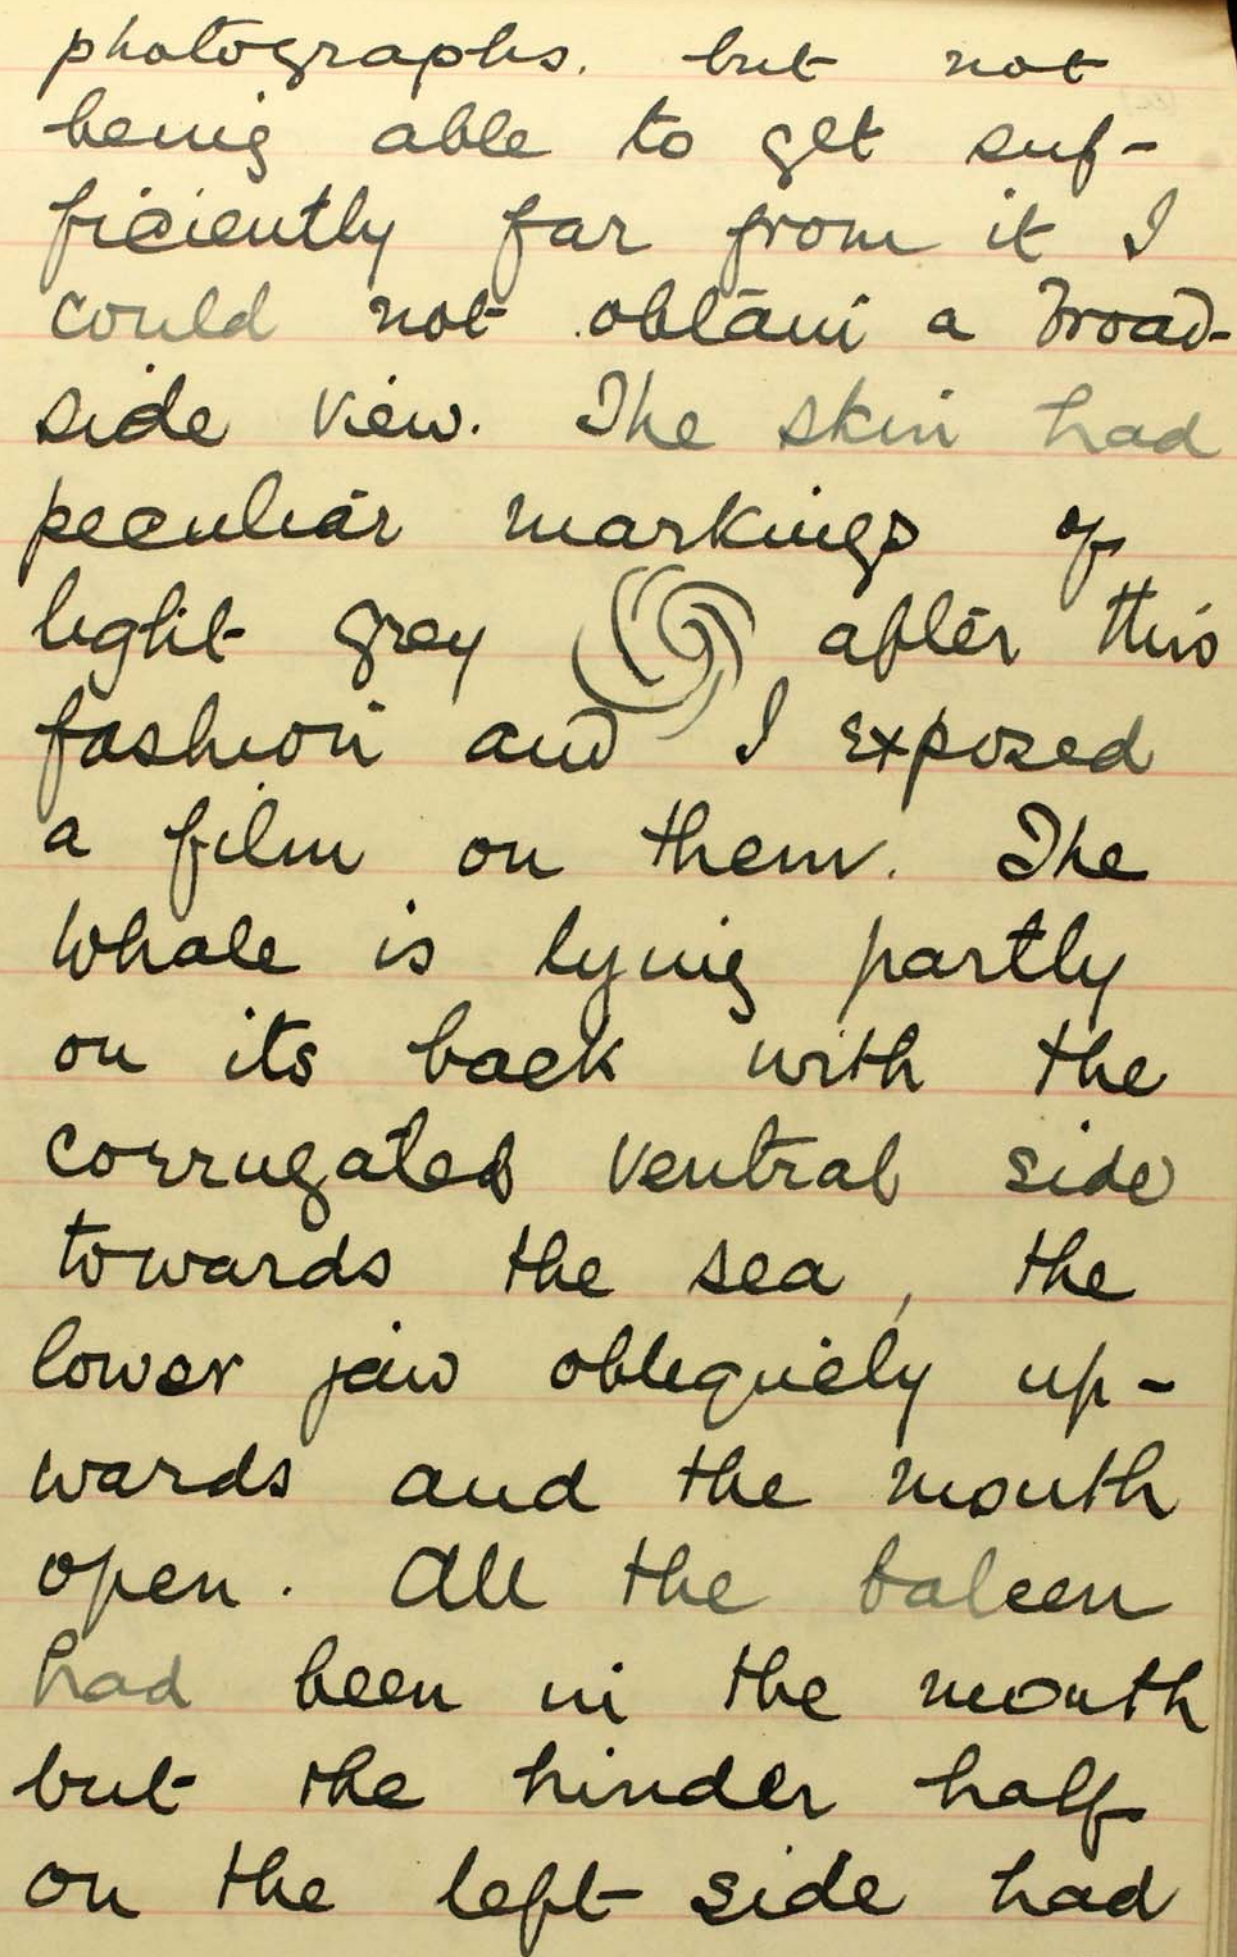 photographs. but not
being able to get suf-
ficiently far from it I
could not obtain a broad-
side view. The skin had
peculiar markings of
light grey after this
fashion and I exposed
a film on them. The
whale is lying partly
on its back with the
corrugated ventral side
towards the sea, the
lower jaw obliquely up-
wards and the mouth
open. All the baleen
had been in the mouth
but the hinder half
on the left side had